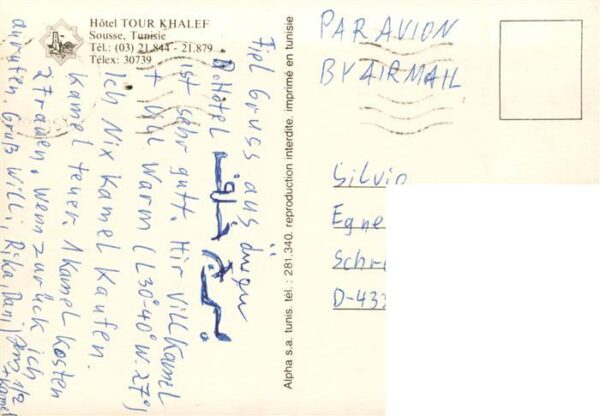 Hôtel TOUR KHALEF
Sousse, Tunisie
Tél.: (03) 21.844 - 21.879
Télex: 30739
Fiel Gruss aus
Hotel
ist sehr gutt. Hir vill Kamel
+ vill warm (L 30°-40° W. 27°)
Ich Nix Kamel kaufen.
Kamel teuer. 1 Kamel kosten
2 Frauen. Wenn zurück ich
anrufen. Gruß Willi, Rika, Dani,
+ Kamel
Alpha s.a. tunis. tel.: 281.340. reproduction interdite. imprimé en tunisie
PAR AVION
BY AIRMAIL
Silvio
Egne
Schr
D-433